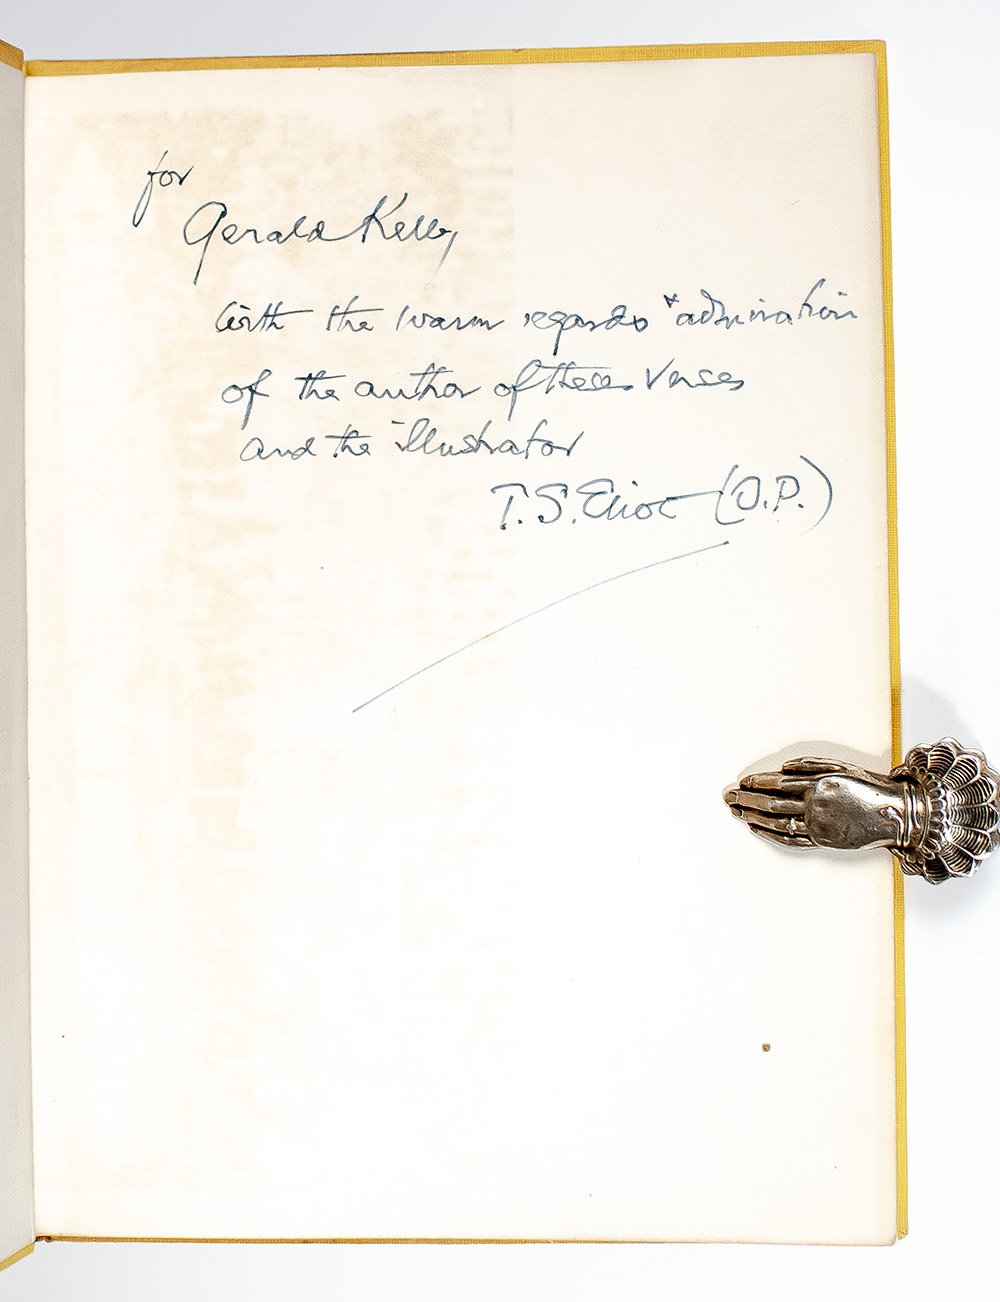 for
Gerald Kelly
with the warm regards & admiration
of the author of these verses
and the illustrator
T. S. Eliot (O.P.)